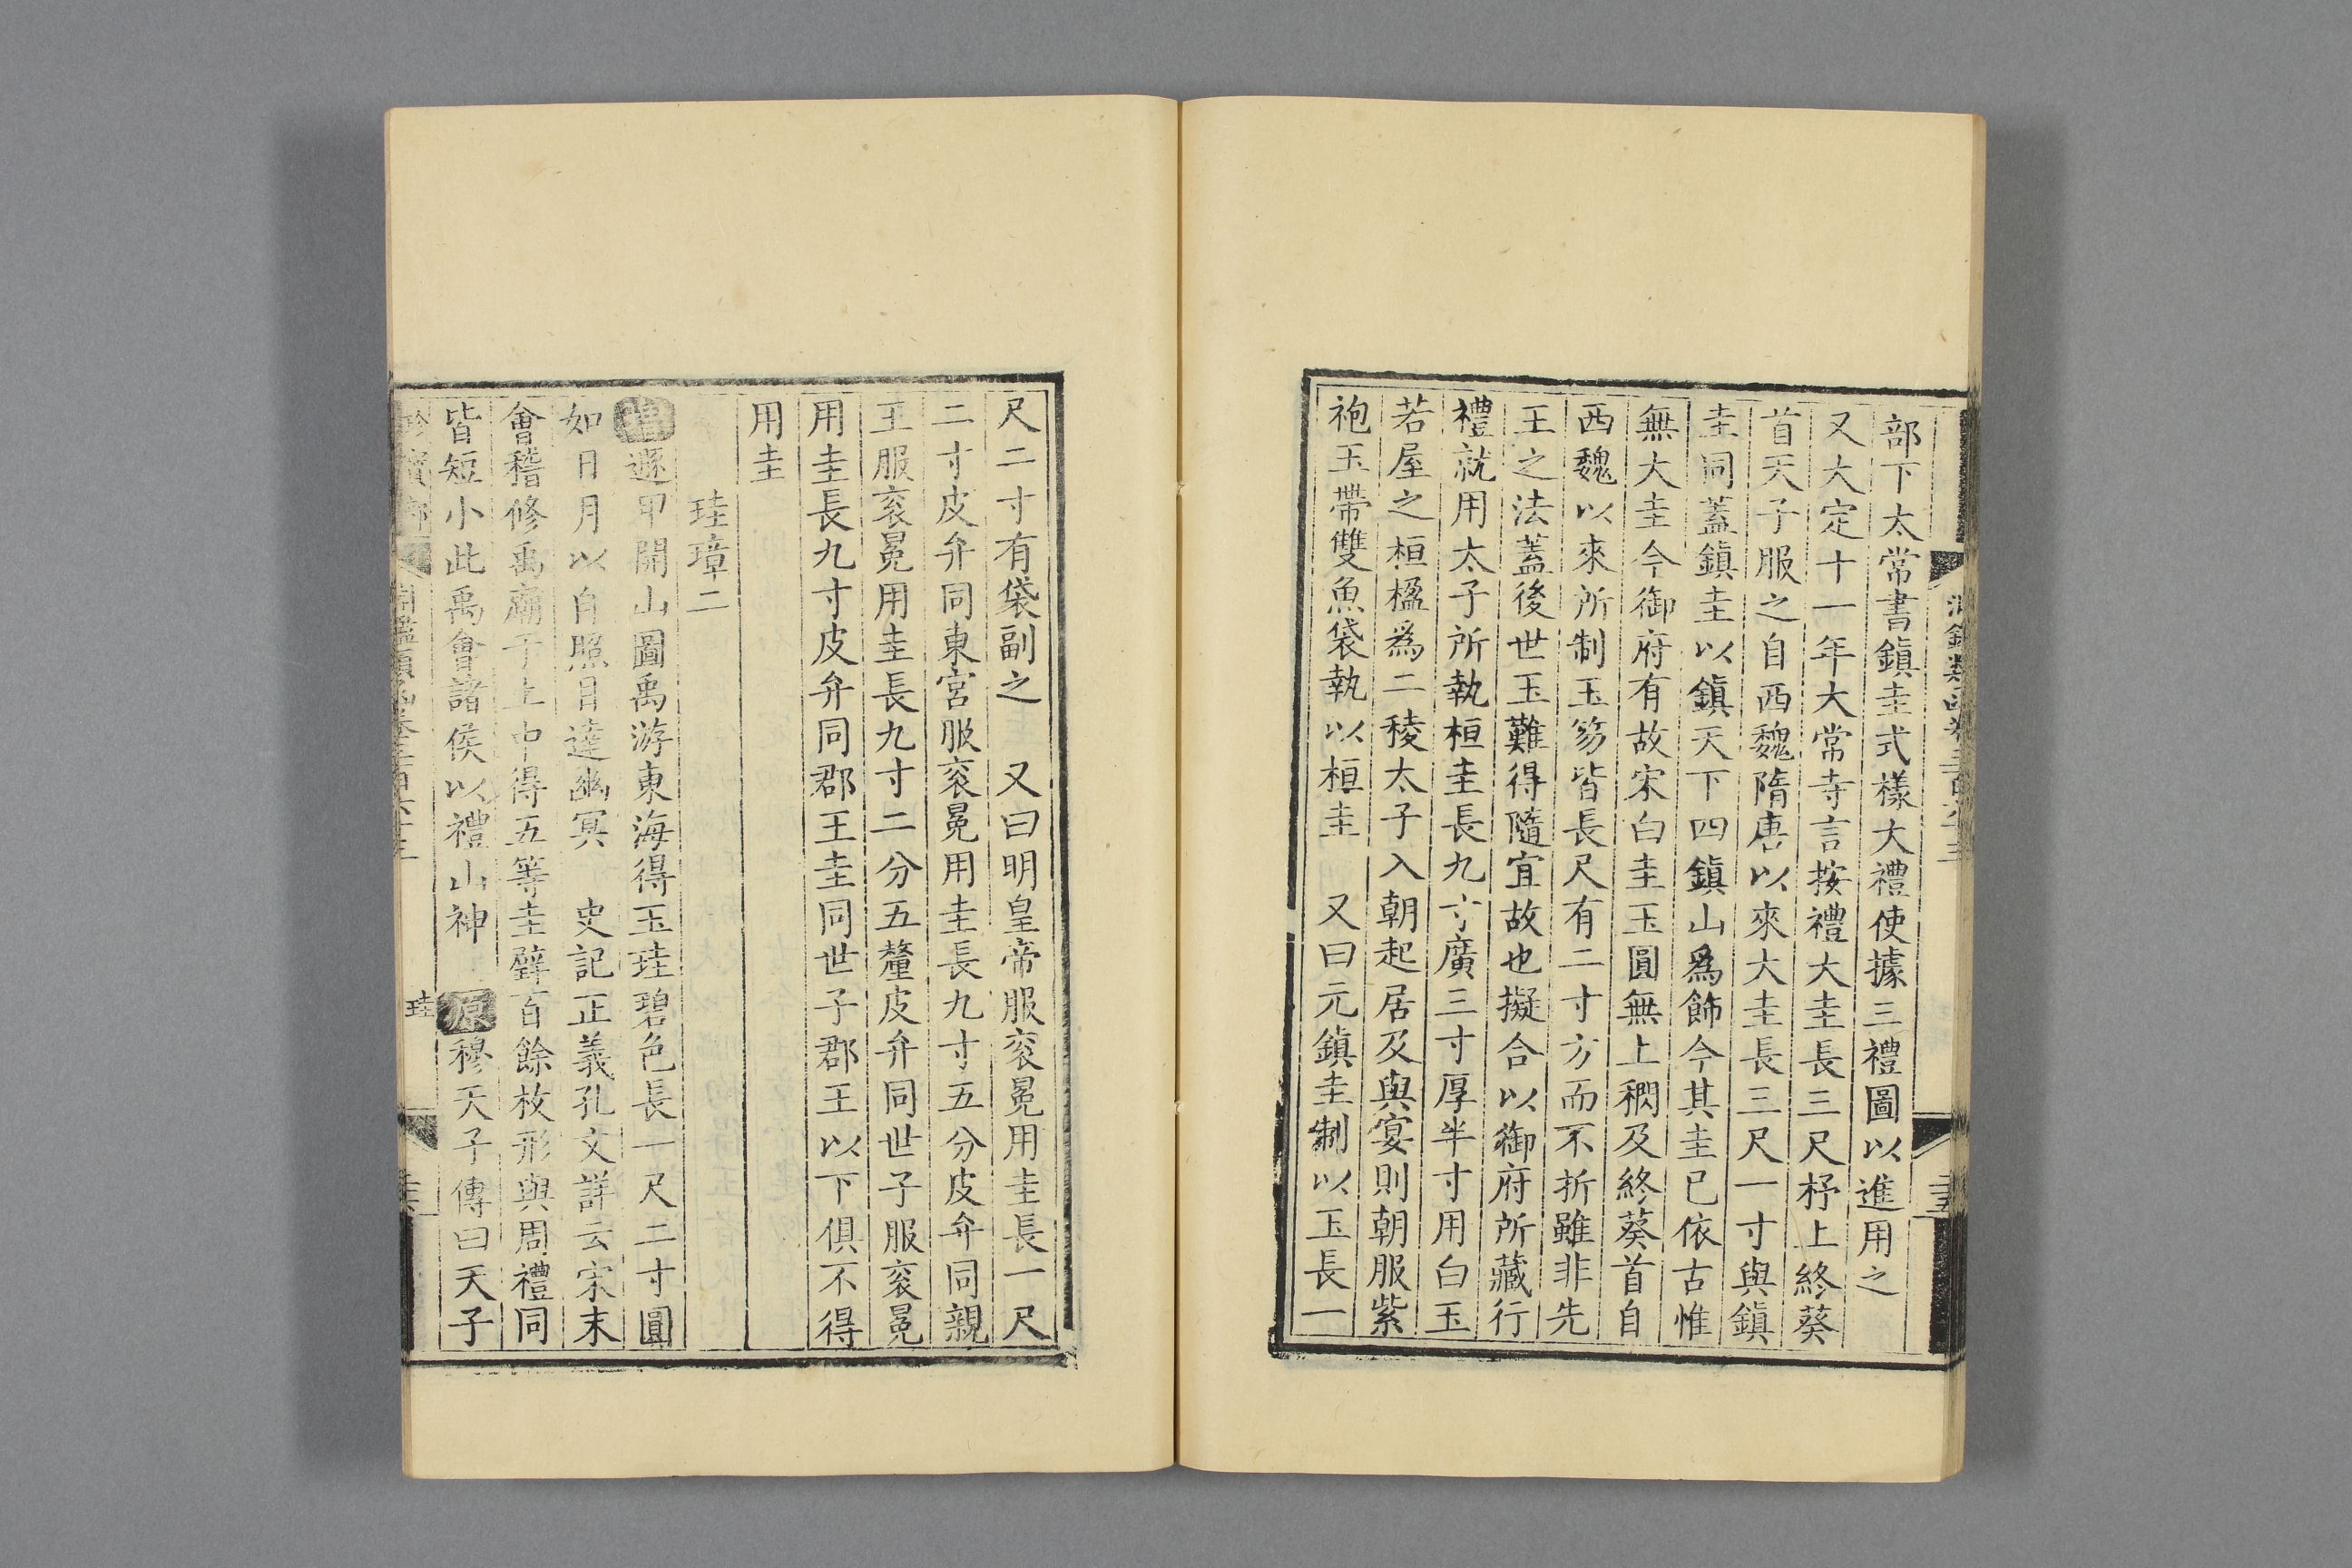 部下太常書鎭圭式樣大禮使據三禮圖以進用之
又大定十一年大常寺言按禮大圭長三尺杼上終葵
首天子服之自西魏隋唐以來大圭長三尺一寸與鎭
圭同蓋鎭圭以鎭天下四鎭山爲飾今其圭已依古惟
無大圭今御府有故宋白圭玉圓無上稠及終葵首自
西魏以來所制玉笏皆長尺有二寸方而不折雖非先
王之法蓋後世玉難得隨宜故也擬合以御府所藏行
禮就用太子所執桓圭長九寸廣三寸厚半寸用白玉
若屋之桓楹爲二稜太子入朝起居及與宴則朝服紫
袍玉帶雙魚袋執以桓圭 又曰元鎭圭制以玉長一
尺二寸有袋副之 又曰明皇帝服衮冕用圭長一尺
二寸皮弁同東宮服衮冕用圭長九寸五分皮弁同親
王服衮冕用圭長九寸二分五釐皮弁同世子服衮冕
用圭長九寸皮弁同郡王圭同世子郡王以下俱不得
用圭
珪璋二
增遯甲開山圖禹游東海得玉珪碧色長一尺二寸圓
如日月以自照目達幽冥 史記正義孔文詳云宋末
會稽修禹廟于土中得五等圭璧百餘枚形與周禮同
皆短小此禹會諸侯以禮山神 原穆天子傳曰天子
珪